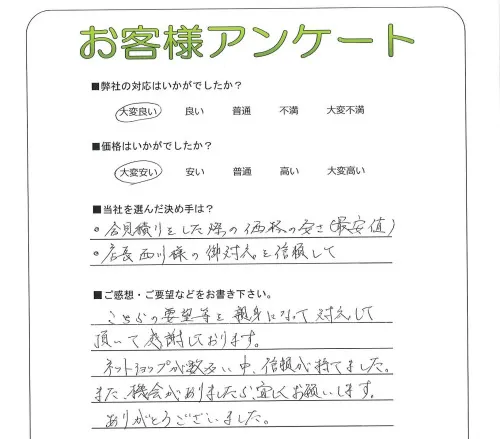 お客様アンケート
■弊社の対応はいかがでしたか？
大変良い 良い 普通 不満 大変不満
■価格はいかがでしたか？
大変安い 安い 普通 高い 大変高い
■当社を選んだ決め手は？
・合見積りをした際の価格の安さ(最安値)
・店長西川様の御対応を信頼して
■ご感想・ご要望などをお書き下さい。
こちらの要望等を親身になって対応して
頂いて感謝しております。
ネットショップが数多い中、信頼が持てました。
また、機会がありましたら宜しくお願いします。
ありがとうございました。